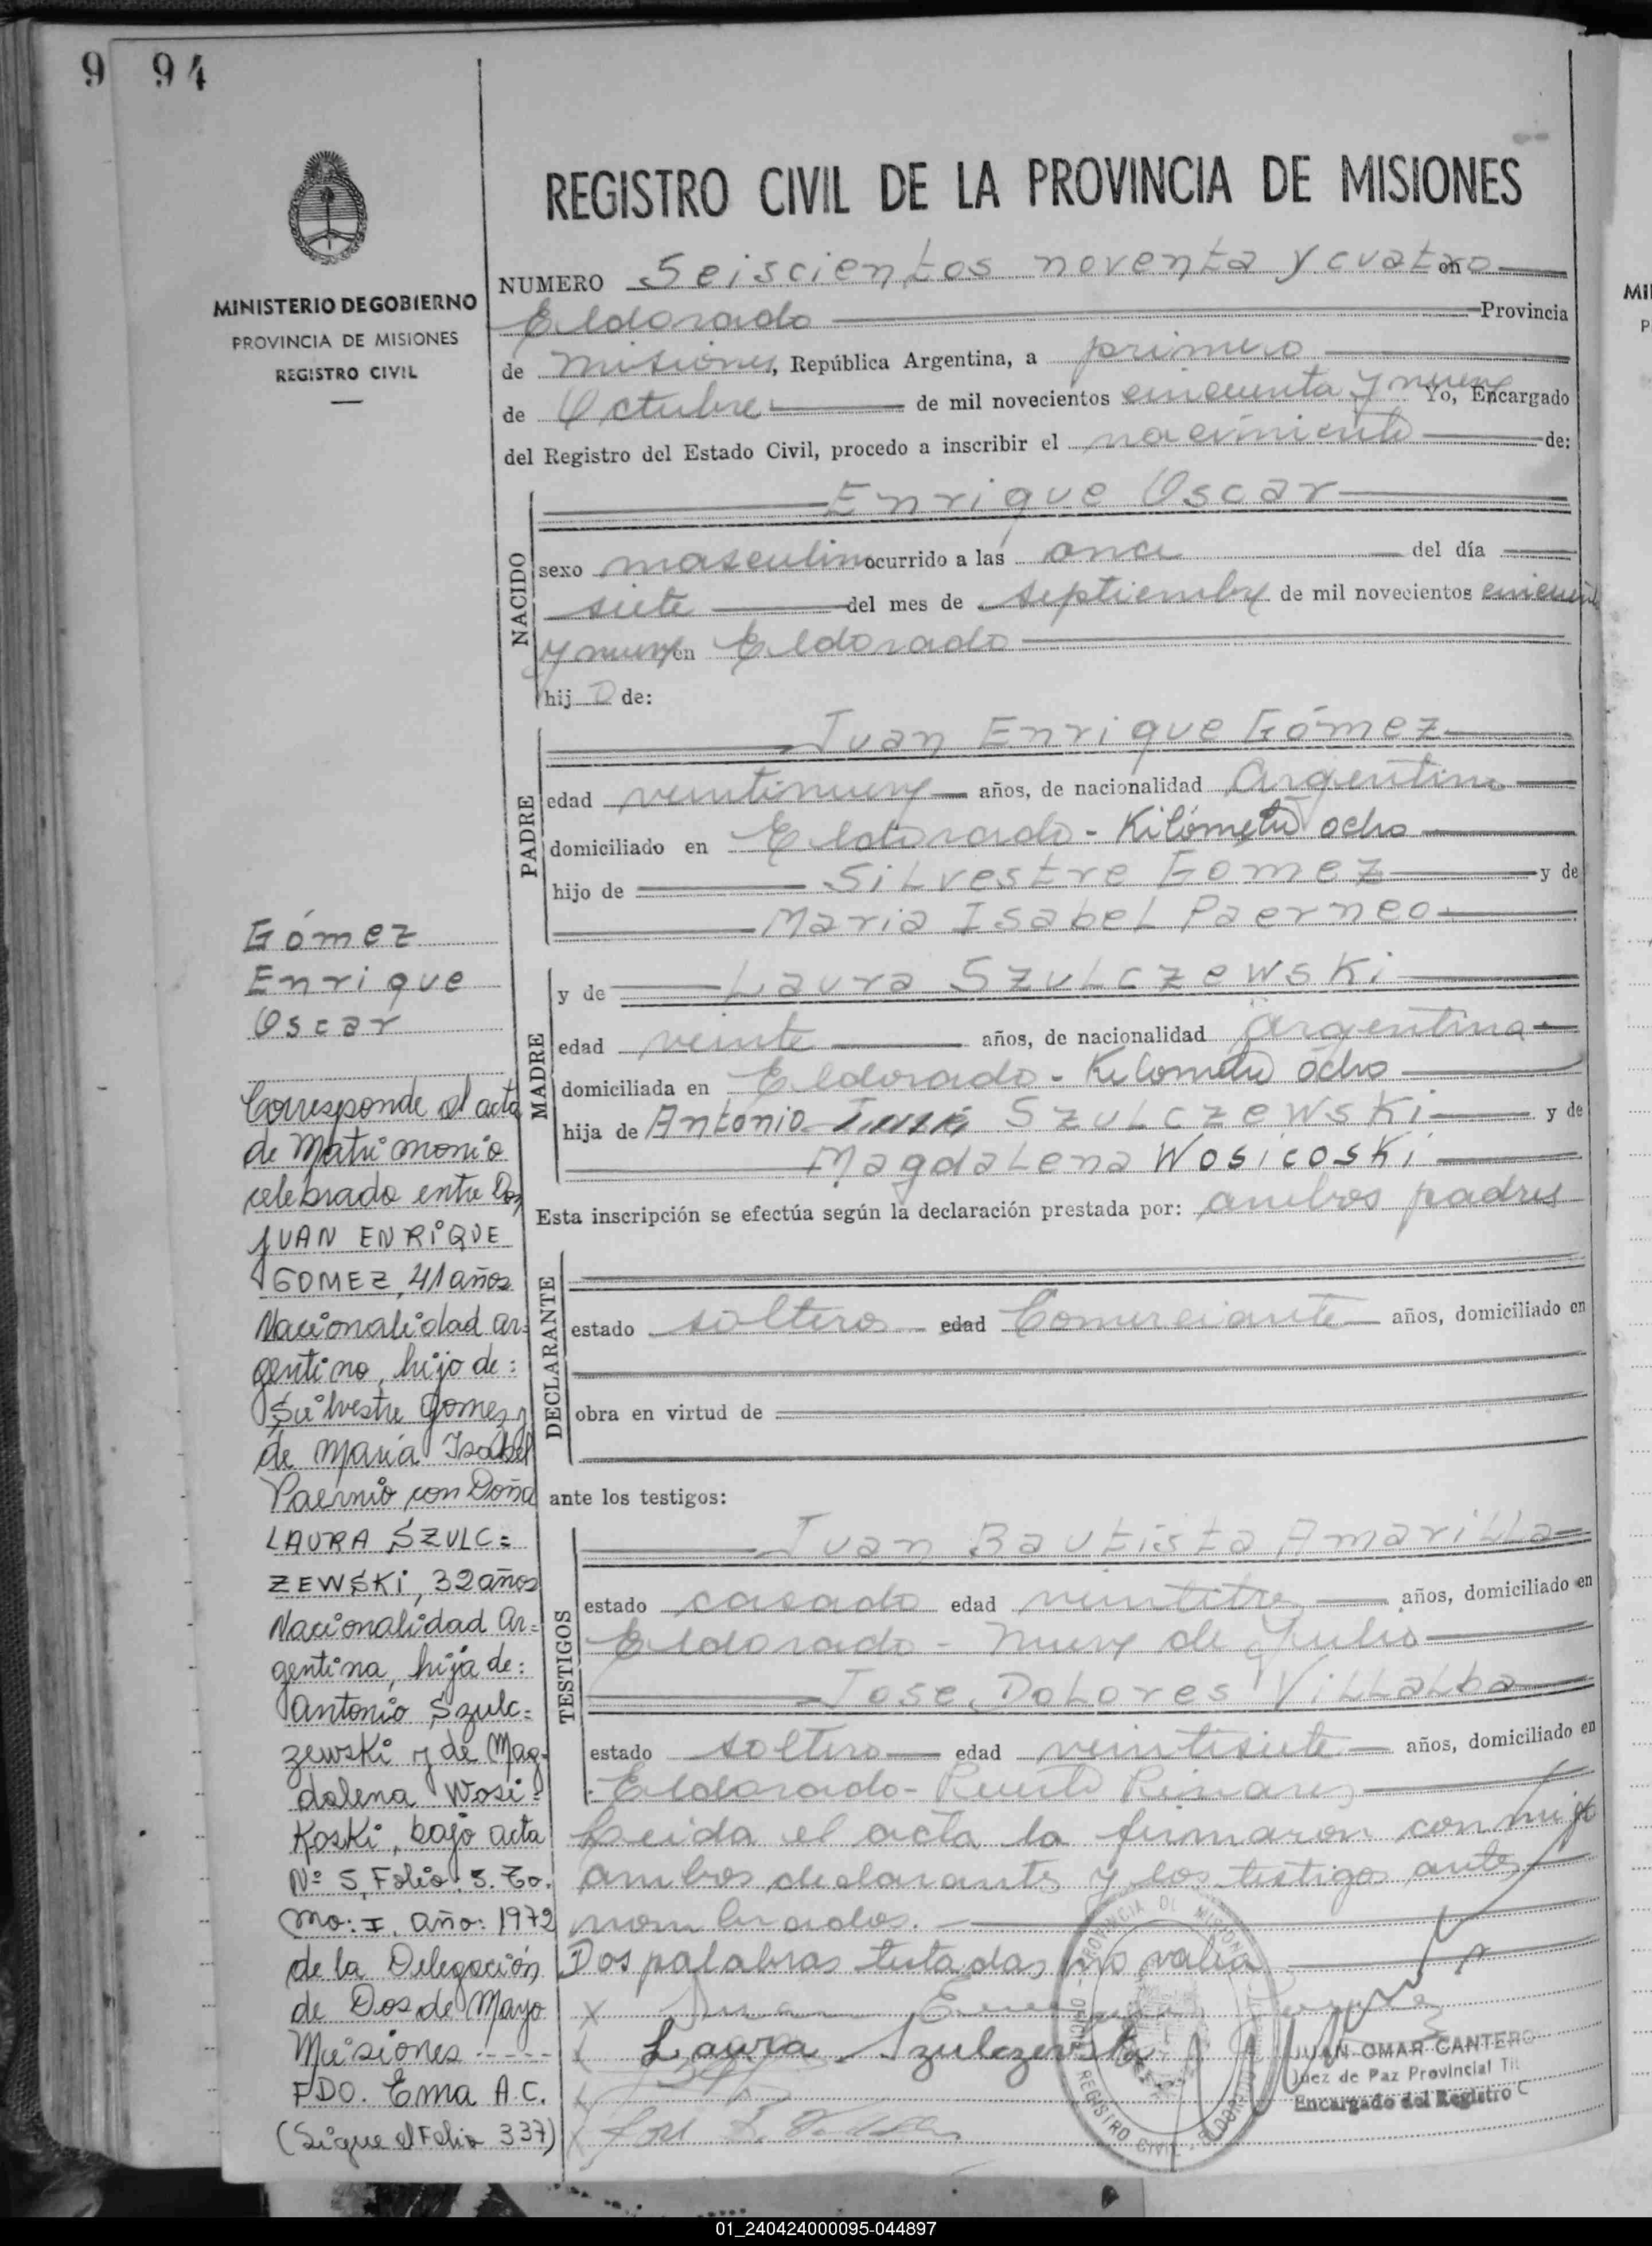 9 94
MINISTERIO DE GOBIERNO
PROVINCIA DE MISIONES
REGISTRO CIVIL
Gómez
Enrique
Oscar
Corresponde al acta
de Matrimonio
celebrado entre Don
JUAN ENRIQUE
GOMEZ, 41 años
Nacionalidad ar=
gentino, hijo de:
Silvestre Gomez y
de María Isabel
Paernio con Doña
LAURA SZULC=
ZEWSKi, 32 años
Nacionalidad Ar=
gentina, hija de:
Antonio Szulc=
zewski y de Mag-
dalena Wosi=
Koski, bajo acta
Nº 5, Folio: 5. To.
mo: I, año: 1972
de la Delegación
de Dos de Mayo
Misiones -----
FDO. Ema A.C.
(Sigue el Folio 337)
REGISTRO CIVIL DE LA PROVINCIA DE MISIONES
NUMERO Seiscientos noventa y cuatro en
Eldorado Provincia
de Misiones, República Argentina, a primero
de Octubre de mil novecientos cincuenta y nueve Yo, Encargado
del Registro del Estado Civil, procedo a inscribir el nacimiento de:
NACIDO
Enrique Oscar
sexo masculino ocurrido a las once del día
siete del mes de septiembre de mil novecientos cincuenta
y nueve en Eldorado
hij o de:
PADRE
Juan Enrique Gómez
edad veintinueve años, de nacionalidad Argentino
domiciliado en Eldorado - Kilómetro ocho
hijo de Silvestre Gomez y de
Maria Isabel Paerneo
MADRE
y de Laura Szulczewski
edad veinte años, de nacionalidad argentina
domiciliada en Eldorado - Kilometro ocho
hija de Antonio Szulczewski y de
Magdalena Wosicoski
Esta inscripción se efectúa según la declaración prestada por: ambos padres
DECLARANTE
estado soltero edad Comerciante años, domiciliado en
obra en virtud de
ante los testigos:
TESTIGOS
Juan Bautista Amarilla
estado casado edad veintitres años, domiciliado en
Eldorado - nueve de Julio
Jose Dolores Villalba
estado soltero edad veintisiete años, domiciliado en
Eldorado - Puerto Pinares
Leida el acta la firmaron conmigo
ambos declarantes y los testigos antes
nombrados.
Dos palabras testadas no valen
x Juan Enrique
Laura Szulczewski
PROVINCIA DE MISIONES
REGISTRO CIVIL
JUAN OMAR CANTERO
Juez de Paz Provincial Tit
Encargado del Registro C
01_240424000095-044897